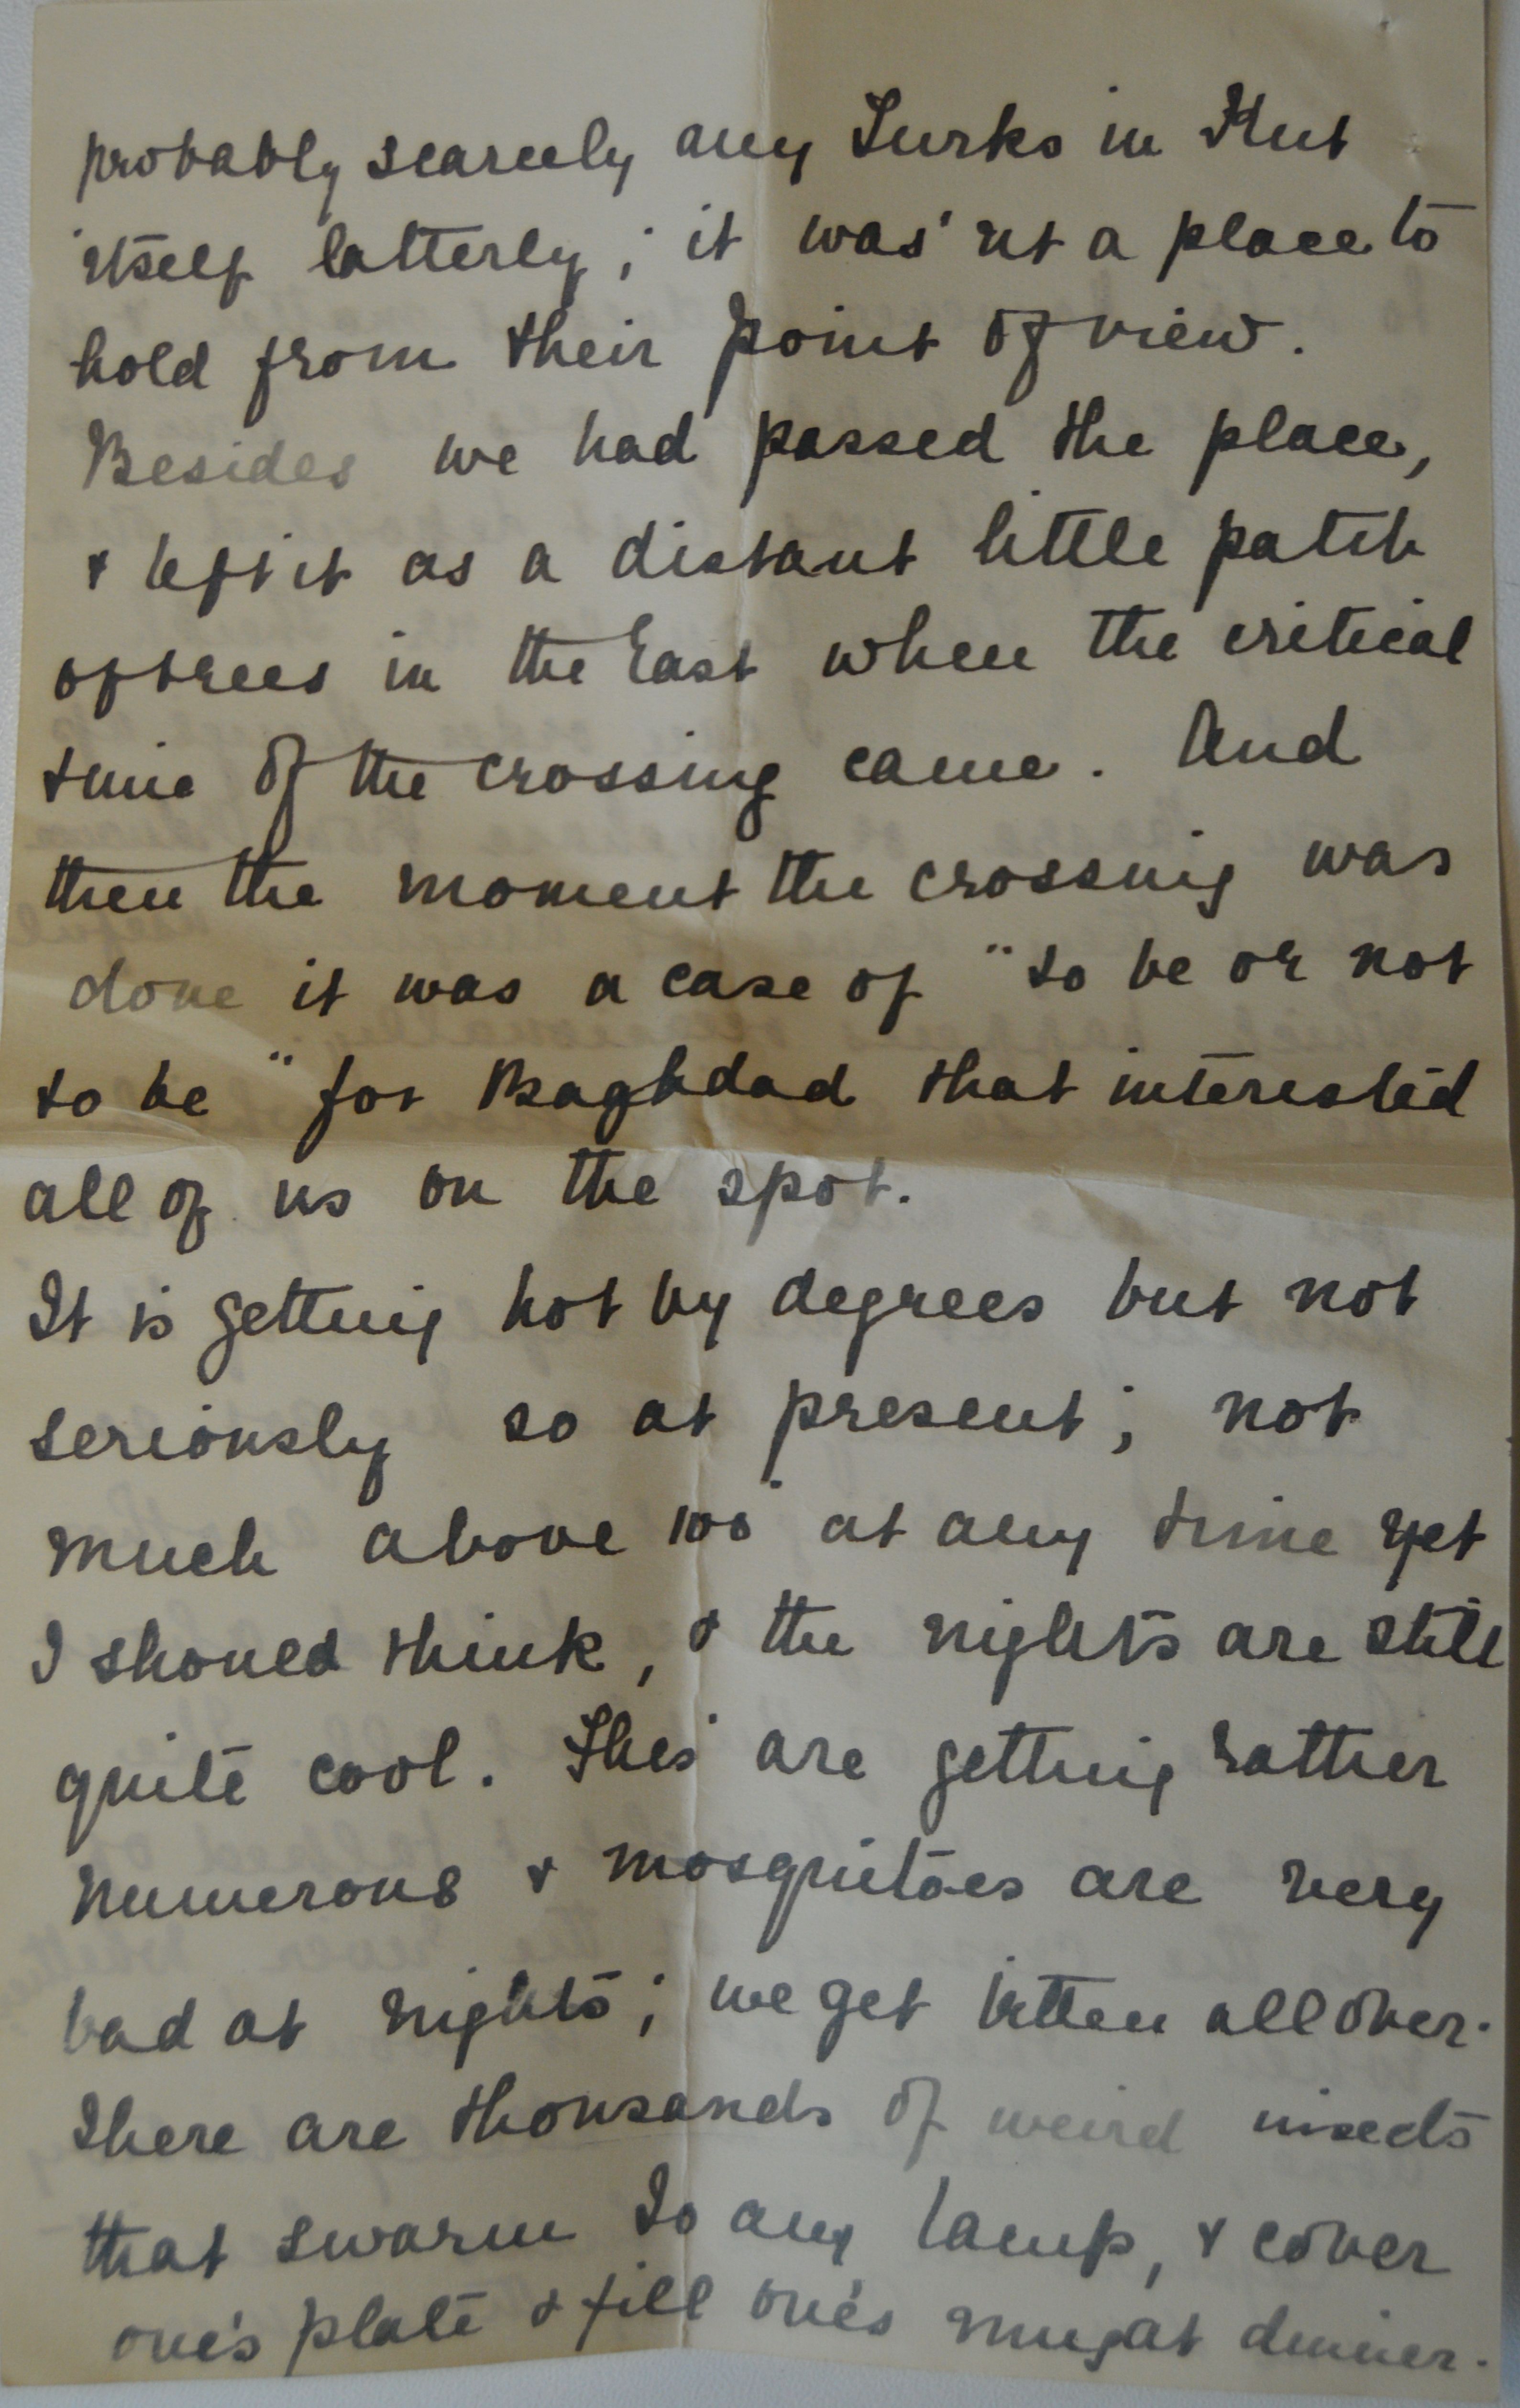 probably scarcely any Turks in Kut
itself latterly; it was'nt a place to
hold from their point of view.
Besides we had passed the place,
& left it as a distant little patch
of trees in the East when the critical
time of the crossing came. And
then the moment the crossing was
done it was a case of "to be or not
to be" for Baghdad that interested
all of us on the spot.
It is getting hot by degrees but not
seriously so at present; not
much above 100° at any time yet
I should think, & the nights are still
quite cool. Flies are getting rather
numerous & mosquitoes are very
bad at nights; we get bitten all over.
There are thousands of weird insects
that swarm to any lamp, & cover
one's plate & fill one's mug at dinner.